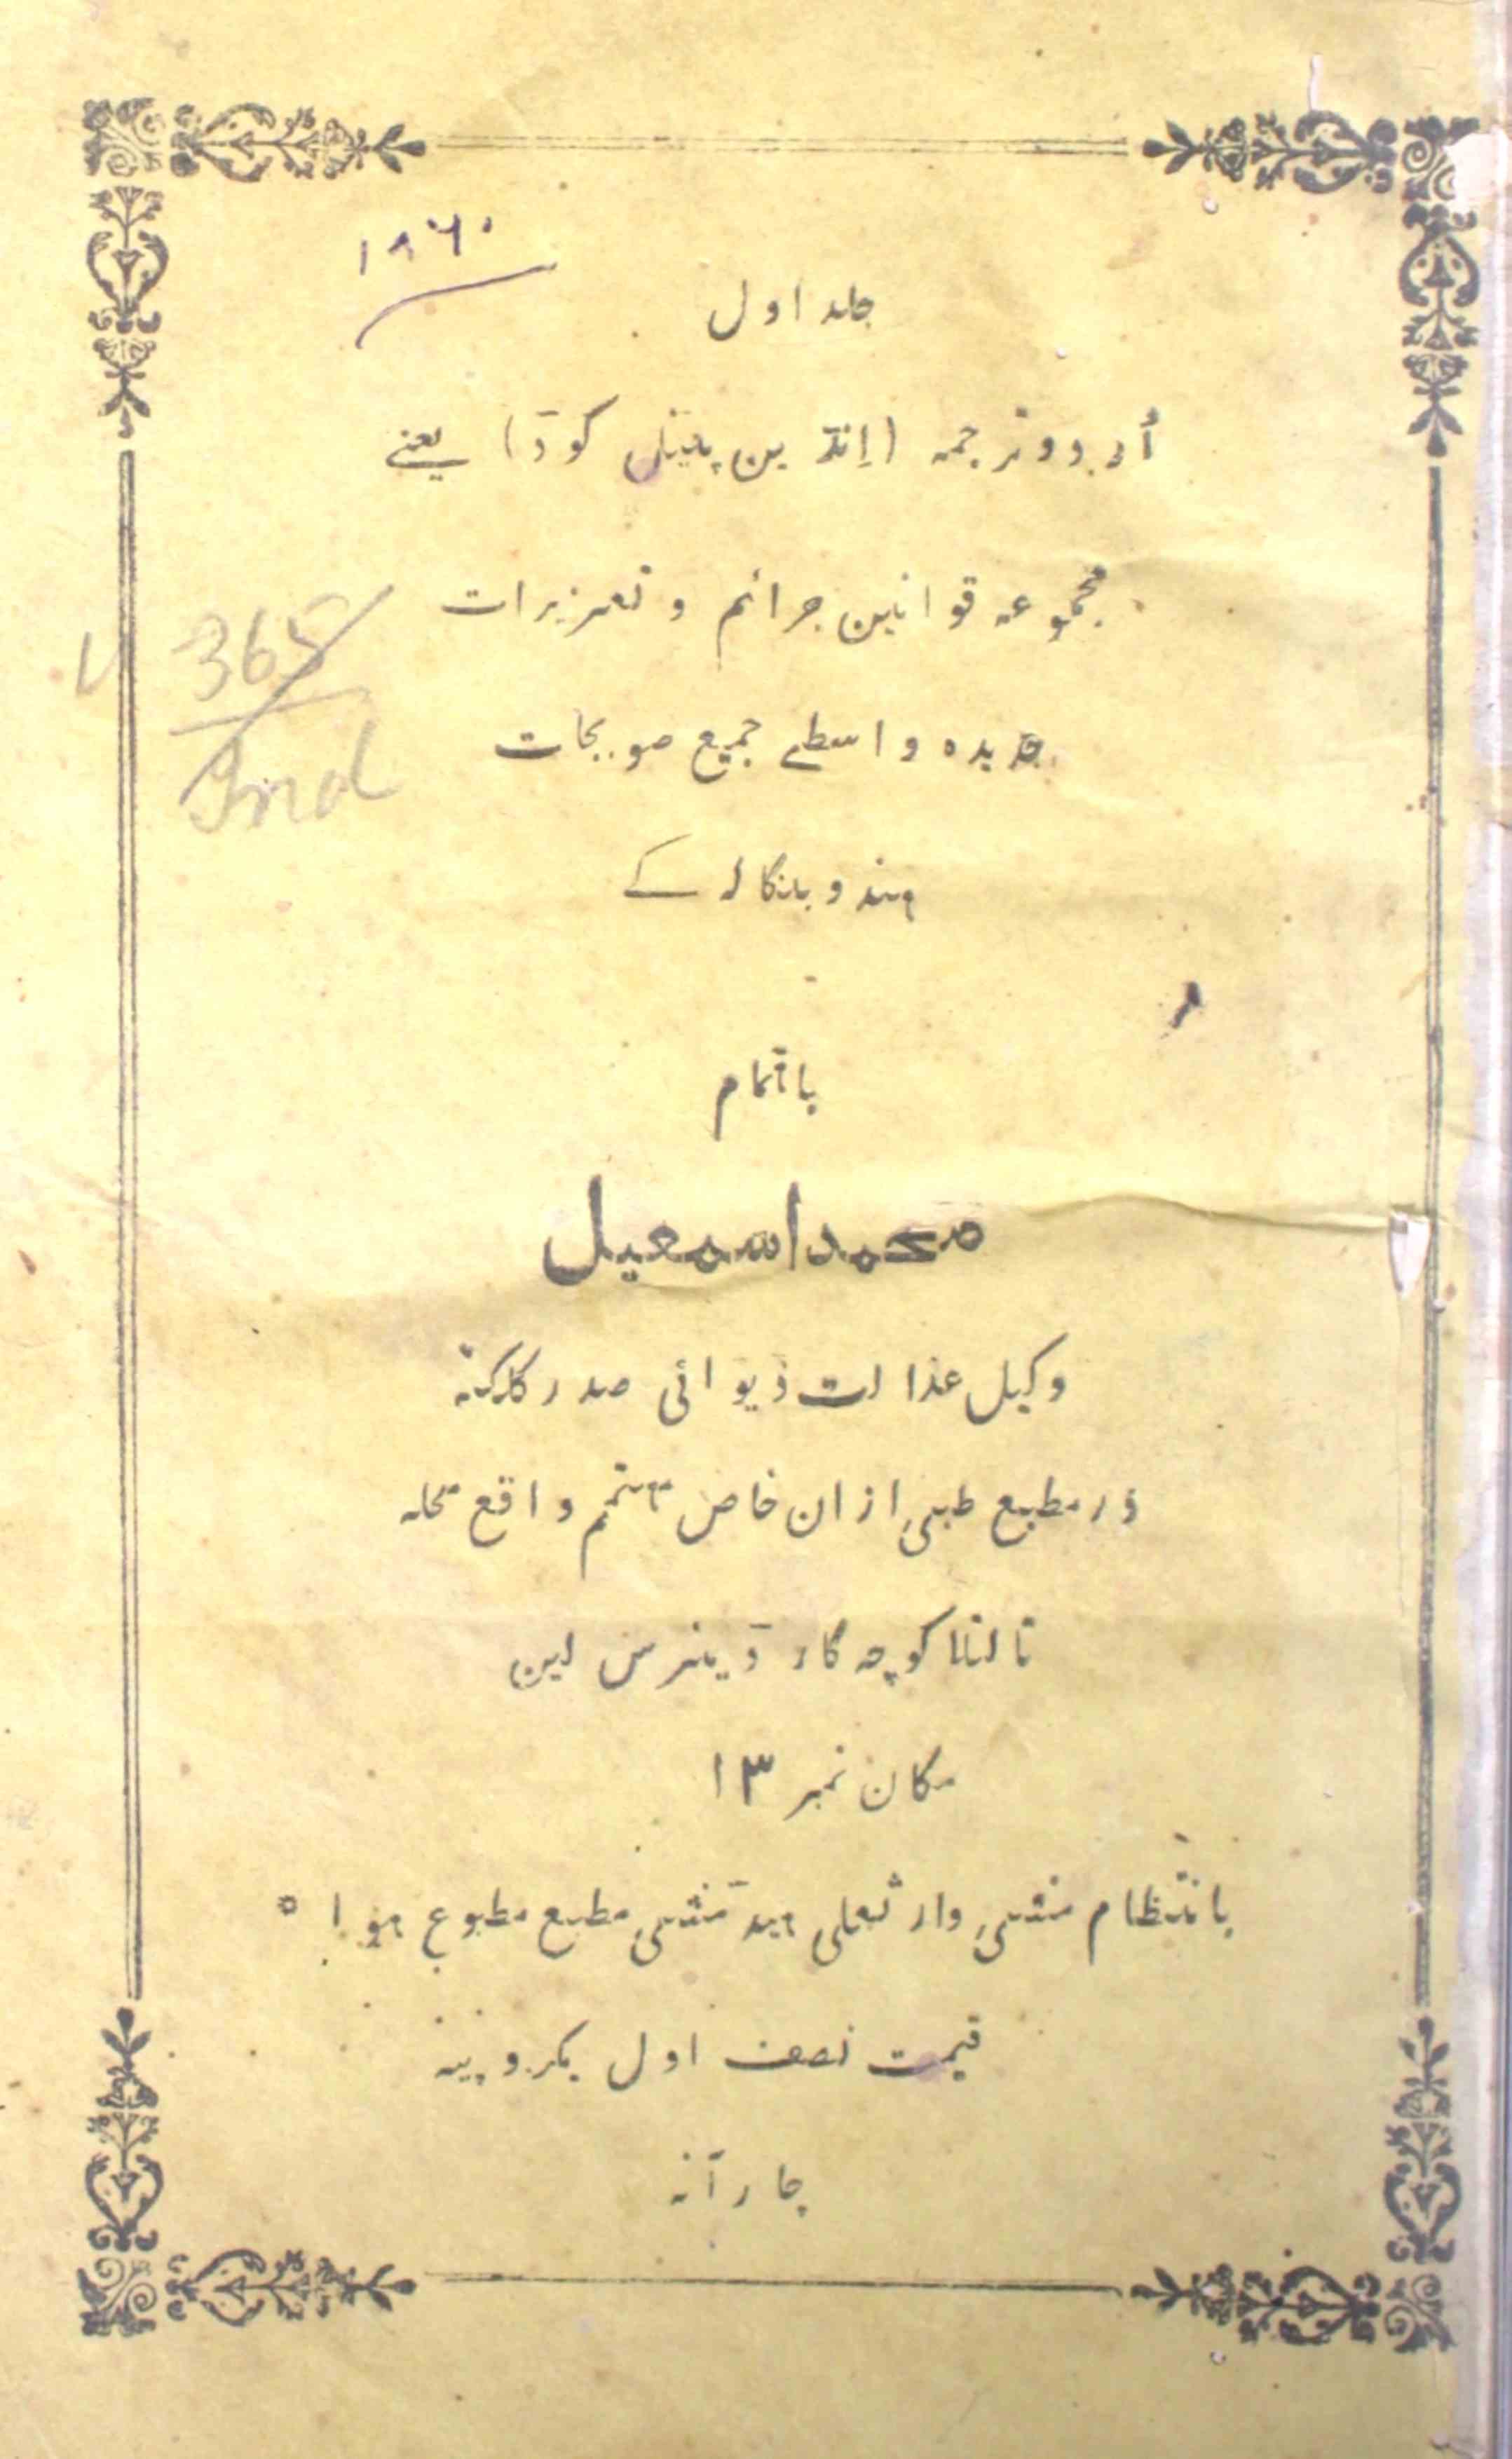 ١٨٦٠
جلد اول
اُردو ترجمہ (اِنڈین پینل کوڈ) یعنے
مجموعہ قوانین جرائم و تعزیرات
جدیدہ واسطے جمیع صوبجات
ہند و بنگالہ کے
365/
Ind
باہتمام
محمد اسمعیل
وکیل عدالت دیوانی صدر کلکتہ
در مطبع طبی ازان خاص مہتمم واقع محلہ
تالتلا کوچہ گارڈینرس لین
مکان نمبر ١٣
بانتظام منشی وارثعلی ہیڈ منشی مطبع مطبوع ہوا *
قیمت نصف اول یکروپیہ
چار آنہ